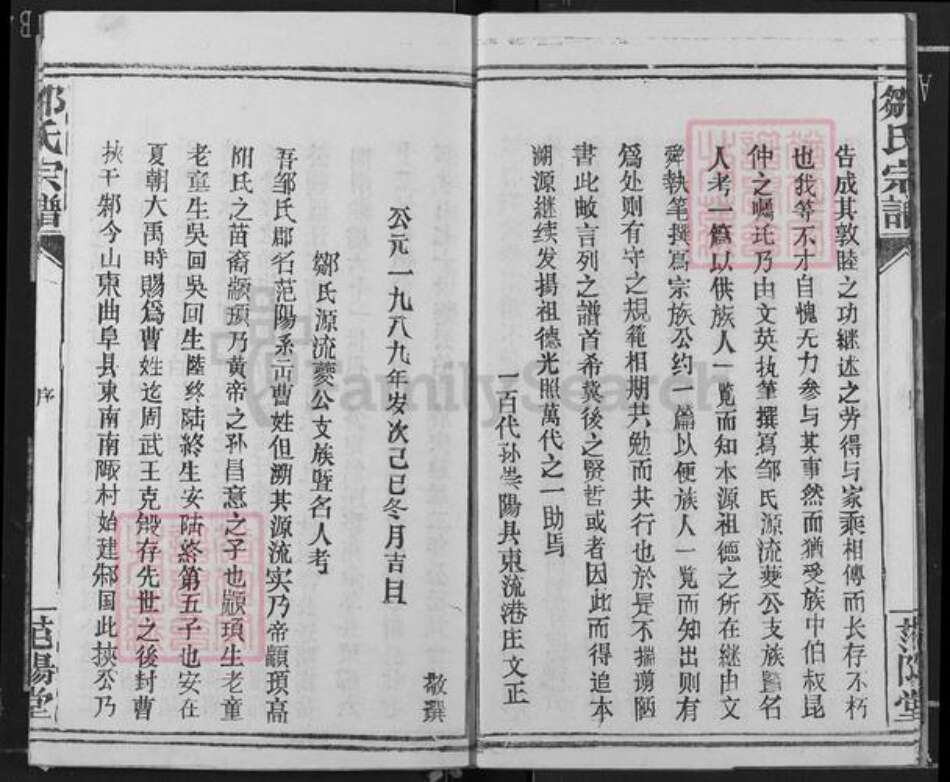 鄒氏宗譜
告成其敦睦之功継述之劳得与家乘相傳而长存不朽
也我等不才自愧无力参与其事然而猶受族中伯叔昆
仲之囑托乃由文英执筆撰寫邹氏源流夔公支族暨名
人考一篇以供族人一覧而知本源祖德之所在継由文
舜執笔撰寫宗族公约一篇以便族人一覧而知出则有
爲处则有守之規範相期共勉而共行也於是不揣谫陋
書此畝言列之譜首希冀後之賢哲或者因此而得追本
溯源継续发揚祖德光照萬代之一助焉
一百代孙崇陽具東流港庄文正
范陽堂
敬撰
公元一九八九年岁次己巳冬月吉日
鄒氏源流夔公支族暨名人考
吾邹氏郡名范陽系而曹姓但溯其源流实乃帝顓頊高
陽氏之苗裔顓頊乃黄帝之孙昌意之子也顓頊生老童
老童生吳回吳回生陸终陸終生安陸終第五子也安在
夏朝大禹時賜爲曹姓迄周武王克殷存先世之後封曹
挟于邾今山東曲阜县東南南陬村始建邾国此挟公乃
邹氏宗譜
序
范陽堂
FamilySearch